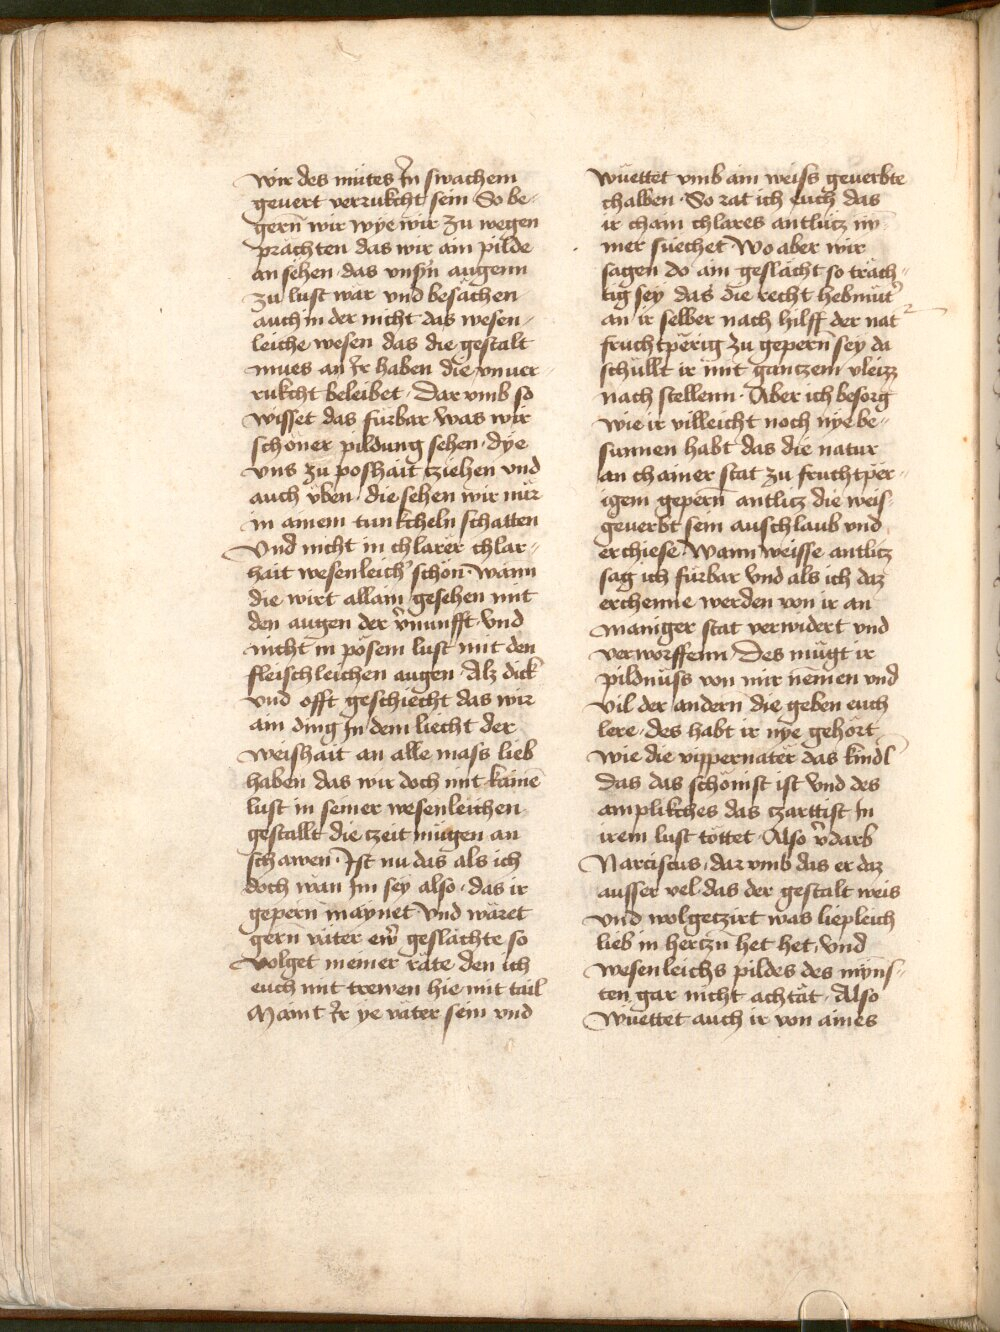 wir des mutes Jn swachem
geuert verrukcht sein So be-
gern̄ wir wye wir zu wegen
prächten das wir am pilde
an sehen das vnsn̄ augenn
zu lust wär vnd besächen
auch in der nicht das wesen-
leiche wesen das die gestalt
mues an Jr haben die vnuer-
rukcht beleibet Dar vmb so
wisset das fürbar was wir
schöner pildung sehen dye
vns zu poshait cziehen vnd
auch vben die sehen wir nür
in ainem tunkcheln schatten
Vnd nicht in chlarer chlar-
hait wesenleich schon wann
die wirt allain gesehen mit
den augen der v̄nunfft vnd
nicht in pösem lust mit den
fleischleichen augen Alz dick
vnd offt geschiecht das wir
ain ding Jn dem liecht der
weishait an alle mass lieb
haben das wir doch mit kainē
lust in seiner wesenleichen
gestallt die czeit mügen an
schawen Ist nu das als ich
doch wän Jm sey also das ir
gepern̄ maynet Vnd wäret
gern̄ väter ew̄ geslächte so
volget meiner räte den ich
euch mit trewen hie mit tail
Maint Jr ye väter sein vnd
wüettet vmb ain weiss geuerbte
chalben So rat ich euch das
ir chain chlares antlücz ny-
mer suechet Wo aber wir
sagen do ain geslächt so träch-
tig sey das die recht hebmut̄
an ir selber nach hilff der nat
fruchtperig zu gepern̄ sey da
schullt ir mit ganczem vleizz
nach stellenn Aber ich besorg
wie ir villeicht noch nye be-
sunnen habt das die natur
an chainer stat zu fruchtper-
igem gepern̄ antlitz die weis
geuerbt sein auschlaub vnd
erchiese Wann weisse antlicz
sag ich fürbar vnd als ich daz
erchenne werden von ir an
maniger stat verwidert vnd
verworffenn Des mügt ir
pildnüss von mir nemen vnd
vil der andern die geben euch
lere des habt ir nye gehört
wie die vippernater das kindl
das das schönist ist vnd des
amplikches das czarttist Jn
irem lust töttet Also v̄darb
Narciscus dar vmb das er daz
ausser vel das der gestalt weis
vnd wolgeczirt was liepleich
lieb in hertzn̄ het het vnd
wesenleichs pildes des myns-
ten gar nicht achtät Also
wüettet auch ir von aines